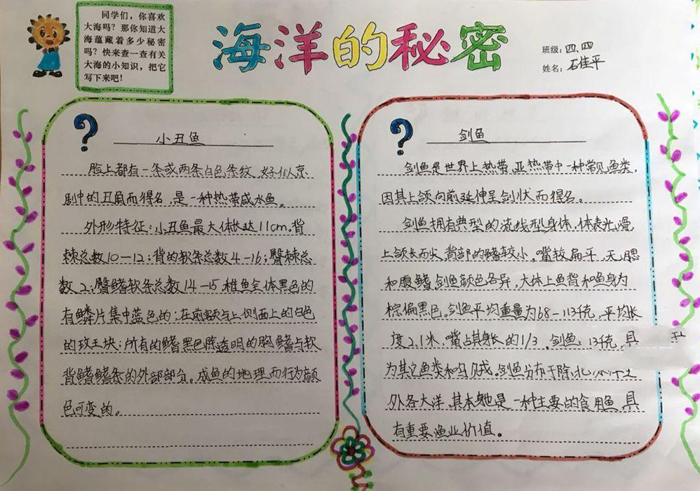 同学们，你喜欢
大海吗？那你知道大
海蕴藏着多少秘密
吗？快来查一查有关
大海的小知识，把它
写下来吧！
海洋的秘密
班级：四、四
姓名：石佳平
?
小丑鱼
脸上都有一条或两条白色条纹，好似京
剧中的丑角而得名，是一种热带咸水鱼。
外形特征：小丑鱼最大体长达11cm，背
棘总数10—12；背的软条总数4-16；臀棘总
数2；臀鳍软条总数14-15，稚鱼全体黑色的
有鳞片集中蓝色的；在
侧面上的白色
的
块；所有的鳍黑色除透明的胸鳍与软
背鳍鳍条的外部部分。成鱼的地理而行为颜
色可变的。
?
剑鱼
剑鱼是世界上热带、亚热带中一种常见鱼类，
因其上颌向前延伸呈剑状而得名。
剑鱼拥有典型的流线型身体，体表光滑，
上颌长而尖，背部的鳍较小。嘴较扁平，无腮
和腹鳍，剑鱼颜色各异，大体上鱼背和鱼身为
棕偏黑色。剑鱼平均重量为68-113千克，平均长
度2.1米，嘴占其身长的1/3。剑鱼
13千克，具
为其它鱼类和乌贼。剑鱼分布于除北
外各大洋，其本
是一种主要的食用鱼，具
有重要渔业价值。